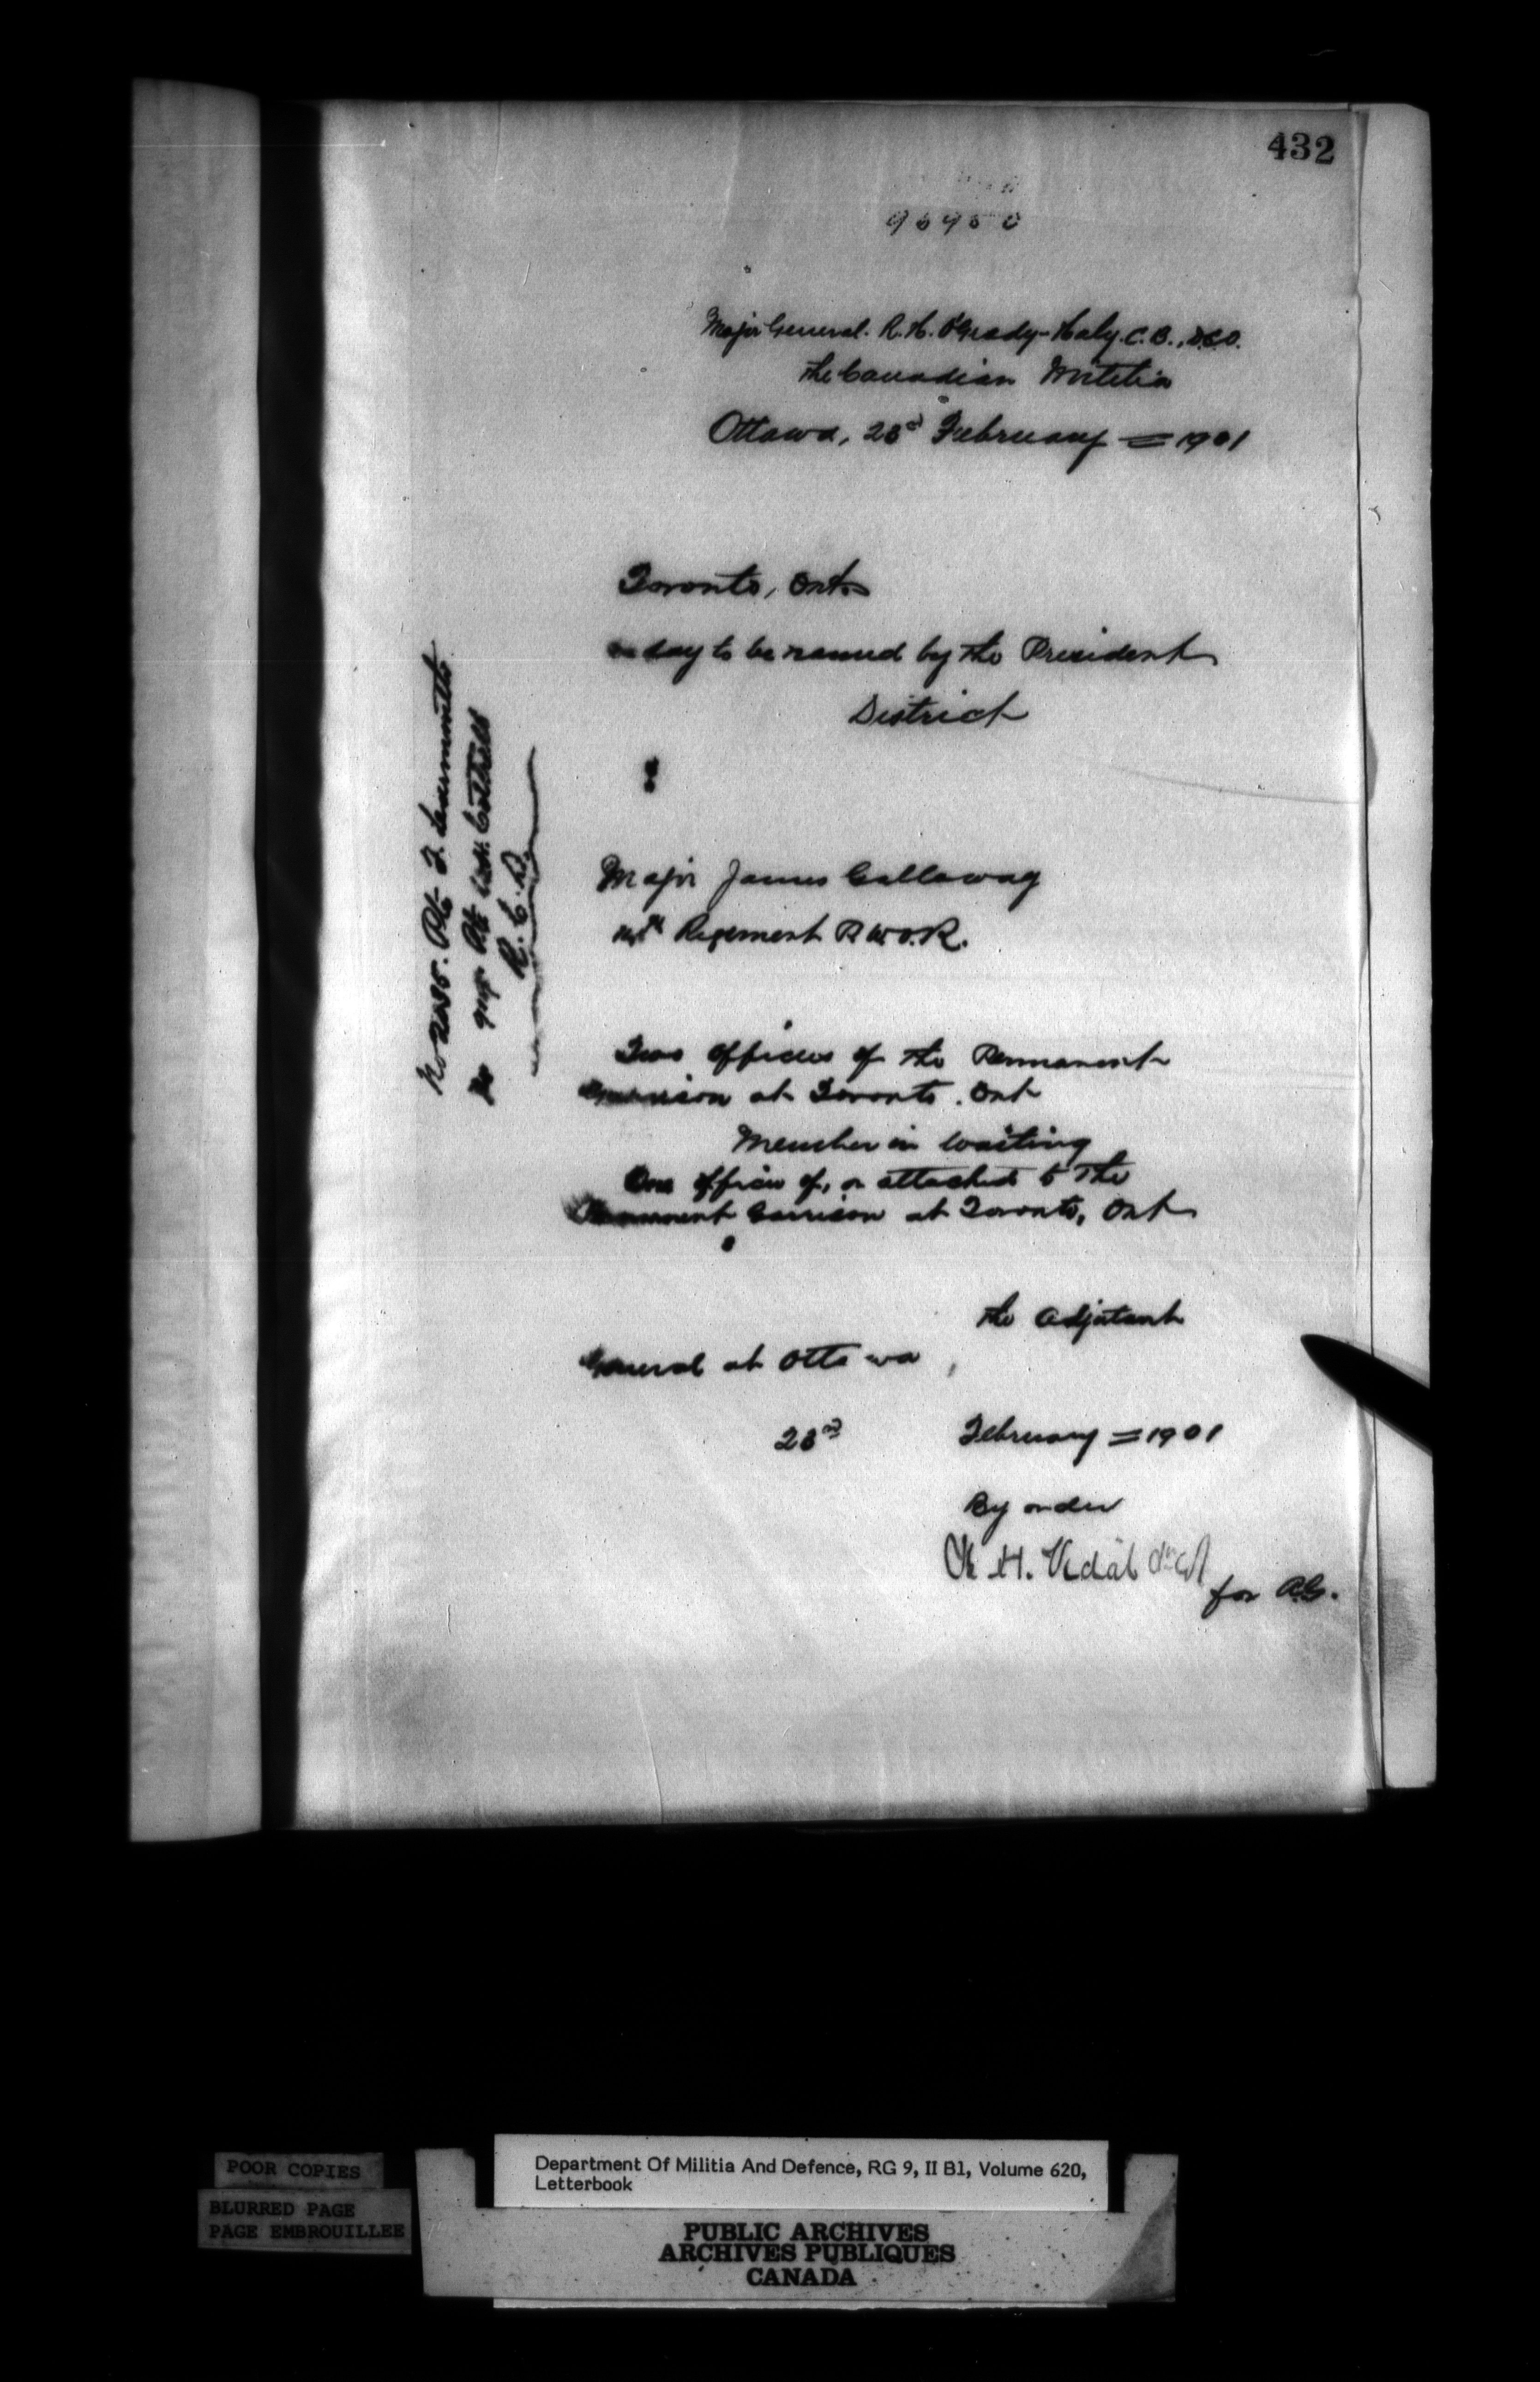 432
96950
Major General. R. H. O'Grady-Haly. C.B., D.S.O.
The Canadian Militia
Ottawa, 23rd February = 1901
Toronto, Ont.
day to be named by the President
District
Major James Galloway
Regiment
Two officers of the Permanent
Garrison at Toronto. Ont
Member in waiting
One officer of, or attached to the
Permanent Garrison at Toronto, Ont
the Adjutant
General at Ottawa
23rd February = 1901
By order
B. H. Vidal
for A.G.
Pte. F. Learmonth
Pte Cottrell
R. C. D.
POOR COPIES
BLURRED PAGE
PAGE EMBROUILLEE
Department Of Militia And Defence, RG 9, II B1, Volume 620,
Letterbook
PUBLIC ARCHIVES
ARCHIVES PUBLIQUES
CANADA